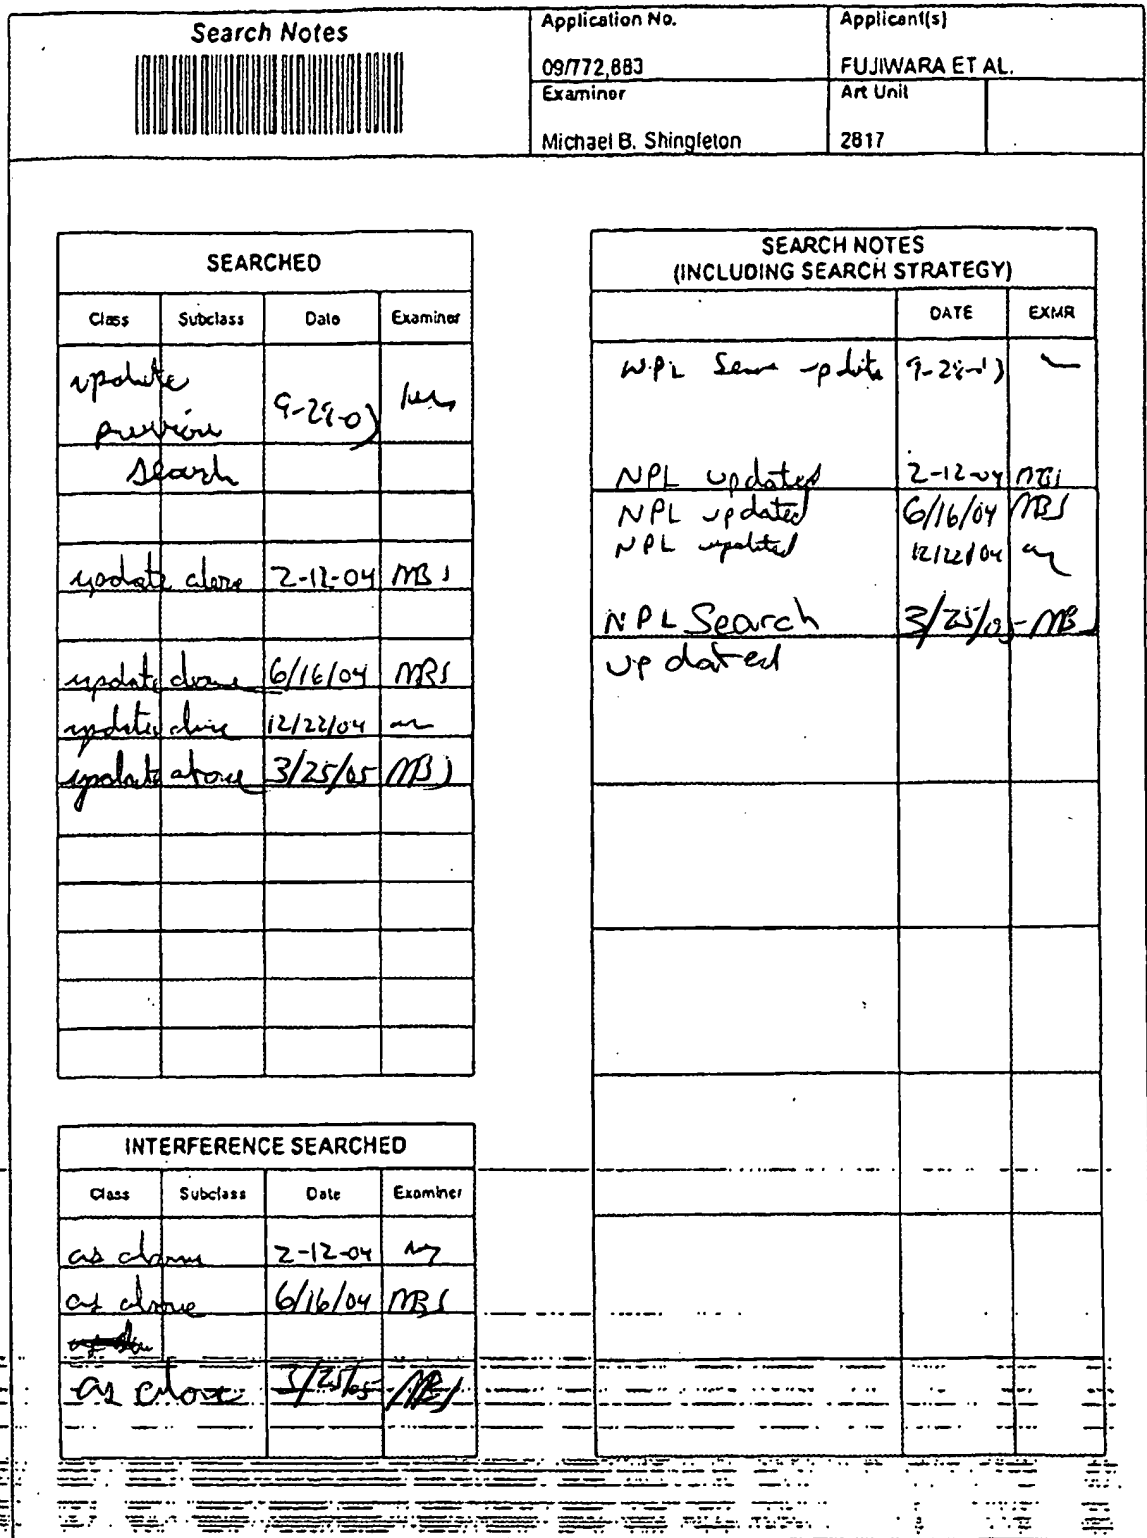 Search Notes
Application No.
09/772,883
Applicant(s)
FUJIWARA ET AL.
Examiner
Michael B. Shingleton
Art Unit
2817
SEARCHED
Class Subclass Date Examiner
update
previous
search
9-29-03
update above 2-12-04 MBS
update above 6/16/04 MBS
update above 12/22/04
update above 3/25/05 MBS
INTERFERENCE SEARCHED
Class Subclass Date Examiner
as above 2-12-04
as above 6/16/04 MBS
as above 3/25/05 MBS
SEARCH NOTES
(INCLUDING SEARCH STRATEGY)
DATE EXMR
update
NPL updated 2-12-04 MBS
NPL updated 6/16/04 MBS
NPL updated 12/22/04
NPL Search 3/25/05 MBS
updated